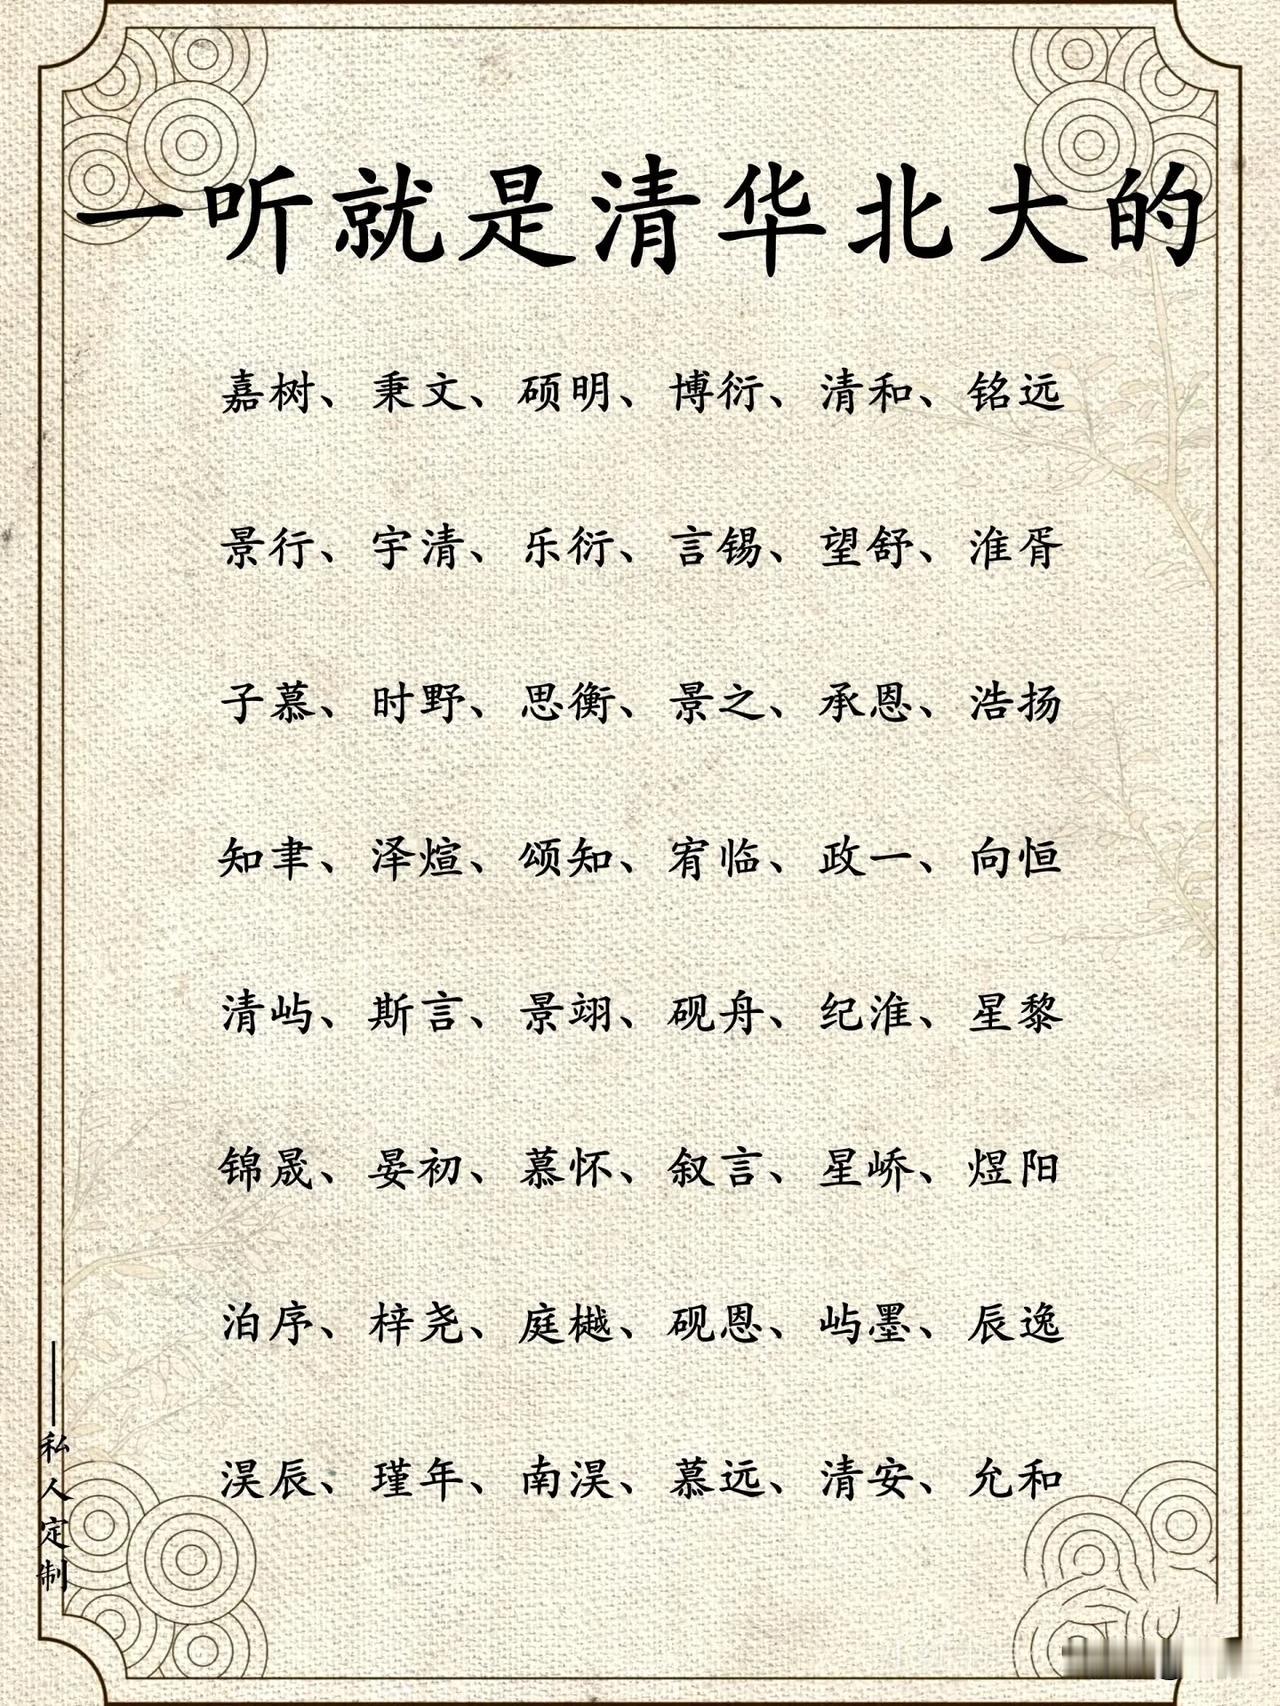 一听就是清华北大的
嘉树、秉文、硕明、博衍、清和、铭远
景行、宇清、乐衍、言锡、望舒、淮胥
子慕、时野、思衡、景之、承恩、浩扬
知聿、泽煊、颂知、宥临、政一、向恒
清屿、斯言、景翊、砚舟、纪淮、星黎
锦晟、晏初、慕怀、叙言、星峤、煜阳
泊序、梓尧、庭樾、砚恩、屿墨、辰逸
淏辰、瑾年、南淏、慕远、清安、允和
——私人定制